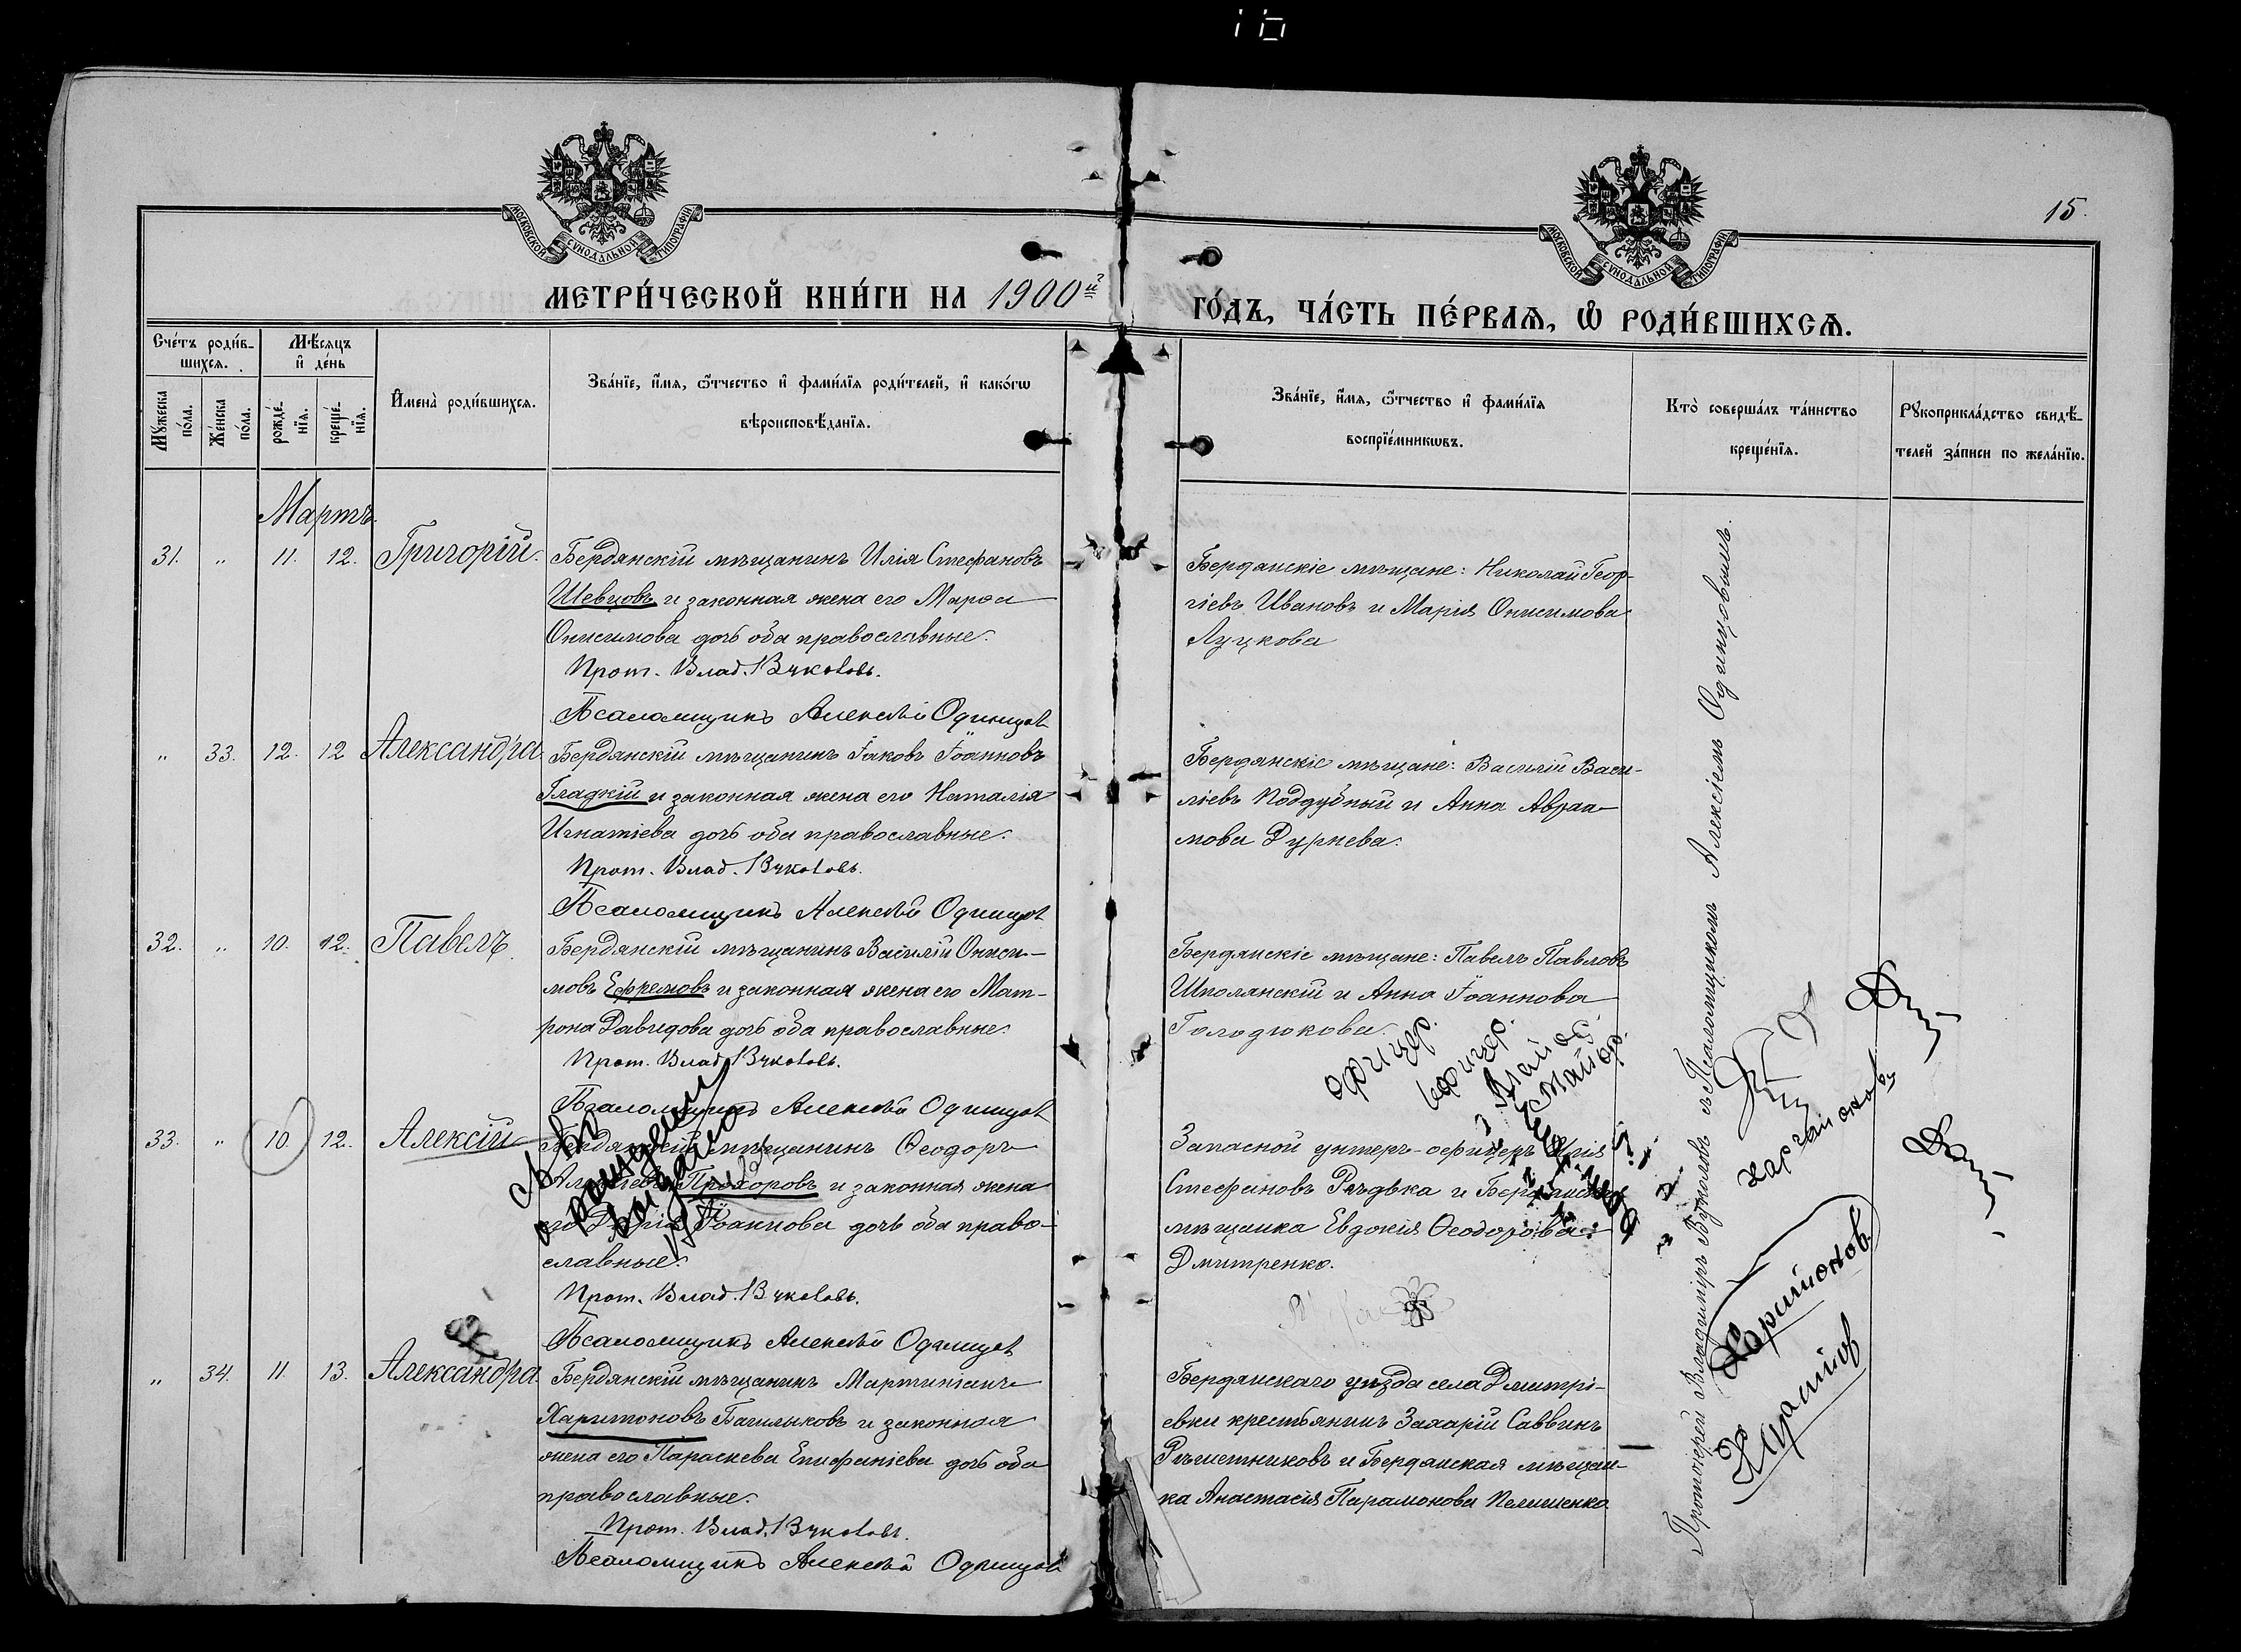 15.
МОСКОВСКОЙ СѴНОДАЛЬНОЙ ТИПОГРАФІИ
МОСКОВСКОЙ СѴНОДАЛЬНОЙ ТИПОГРАФІИ
МЕТРИ́ЧЕСКОЙ КНИ́ГИ НА 1900й
ГО́ДЪ, ЧА́СТЬ ПЕ́РВАѦ, Ѡ РОДИ́ВШИХСѦ.
Сче́тъ роди́в-
шихся.
Мꙋжеска по́ла.
Же́нска по́ла.
Мѣ́сяцъ
и҆ де́нь
рожде́-
нїѧ.
креще́-
нїѧ.
И҆мена̀ роди́вшихся.
Зва́нїе, и҆́мѧ, ѻ҆́тчество и҆ фами́лїѧ роди́телей, и҆ како́гѡ
вѣроисповѣ́данїѧ.
Зва́нїе, и҆́мѧ, ѻ҆́тчество и҆ фами́лїѧ
воспрїе́мникѡвъ.
Кто̀ соверша́лъ та́инство
креще́нїѧ.
Рꙋкоприкла́дство свидѣ́-
телей за́писи по жела́нїю.
Мартъ.
31. „ 11. 12. Григорій.
Бердянскій мѣщанинъ Илія Стефановъ
Шевцовъ и законная жена его Марѳа
Онисимова дочь оба православные.
Прот. Влад. Вуколовъ.
Псаломщикъ Алексѣй Одинцов
Бердянскіе мѣщане: Николай Геор-
гіевъ Ивановъ и Марія Онисимова
Луцкова
„ 33. 12. 12 Александра
Бердянскій мѣщанинъ Іаковъ Іоанновъ
Гладкій и законная жена его Наталія
Игнатіева дочь оба православные.
Прот. Влад. Вуколовъ.
Псаломщикъ Алексѣй Одинцов
Бердянскіе мѣщане: Василій Васи-
ліевъ Поддубный и Анна Авраа-
мова Дурнева.
32. „ 10. 12. Павелъ.
Бердянскій мѣщанинъ Василій Ониси-
мовъ Ефремовъ и законная жена его Мат-
рона Давидова дочь оба православные.
Прот. Влад. Вуколовъ.
Псаломщикъ Алексѣй Одинцов
Бердянскіе мѣщане: Павелъ Павловъ
Шполянскій и Анна Іоаннова
Голодюкова.
33. „ 10. 12. Алексій
Бердянскій мѣщанинъ Ѳеодоръ
Прохоровъ и законная жена
его Іоаннова дочь оба право-
славные.
Прот. Влад. Вуколовъ.
Псаломщикъ Алексѣй Одинцов
Запасной унтеръ-офицеръ Илія
Стефановъ Рѣдька и
мѣщанка Евдокія Ѳеодорова
Дмитренко.
„ 34. 11. 13. Александра.
Бердянскій мѣщанинъ Мартиніанъ
Харитоновъ Башлыковъ и законная
жена его Параскева Епифаніева дочь оба
православные.
Прот. Влад. Вуколовъ.
Псаломщикъ Алексѣй Одинцов
Бердянскаго уѣзда села Дмитрі-
евки крестьянинъ Захарій Саввинъ
Рѣшетниковъ и Бердянская мѣщан-
ка Анастасія Парамонова
Протоіерей Владимиръ Вуколовъ съ Псаломщикомъ Алексіемъ Одинцовымъ.
офицер.
офицер.
Харитонов